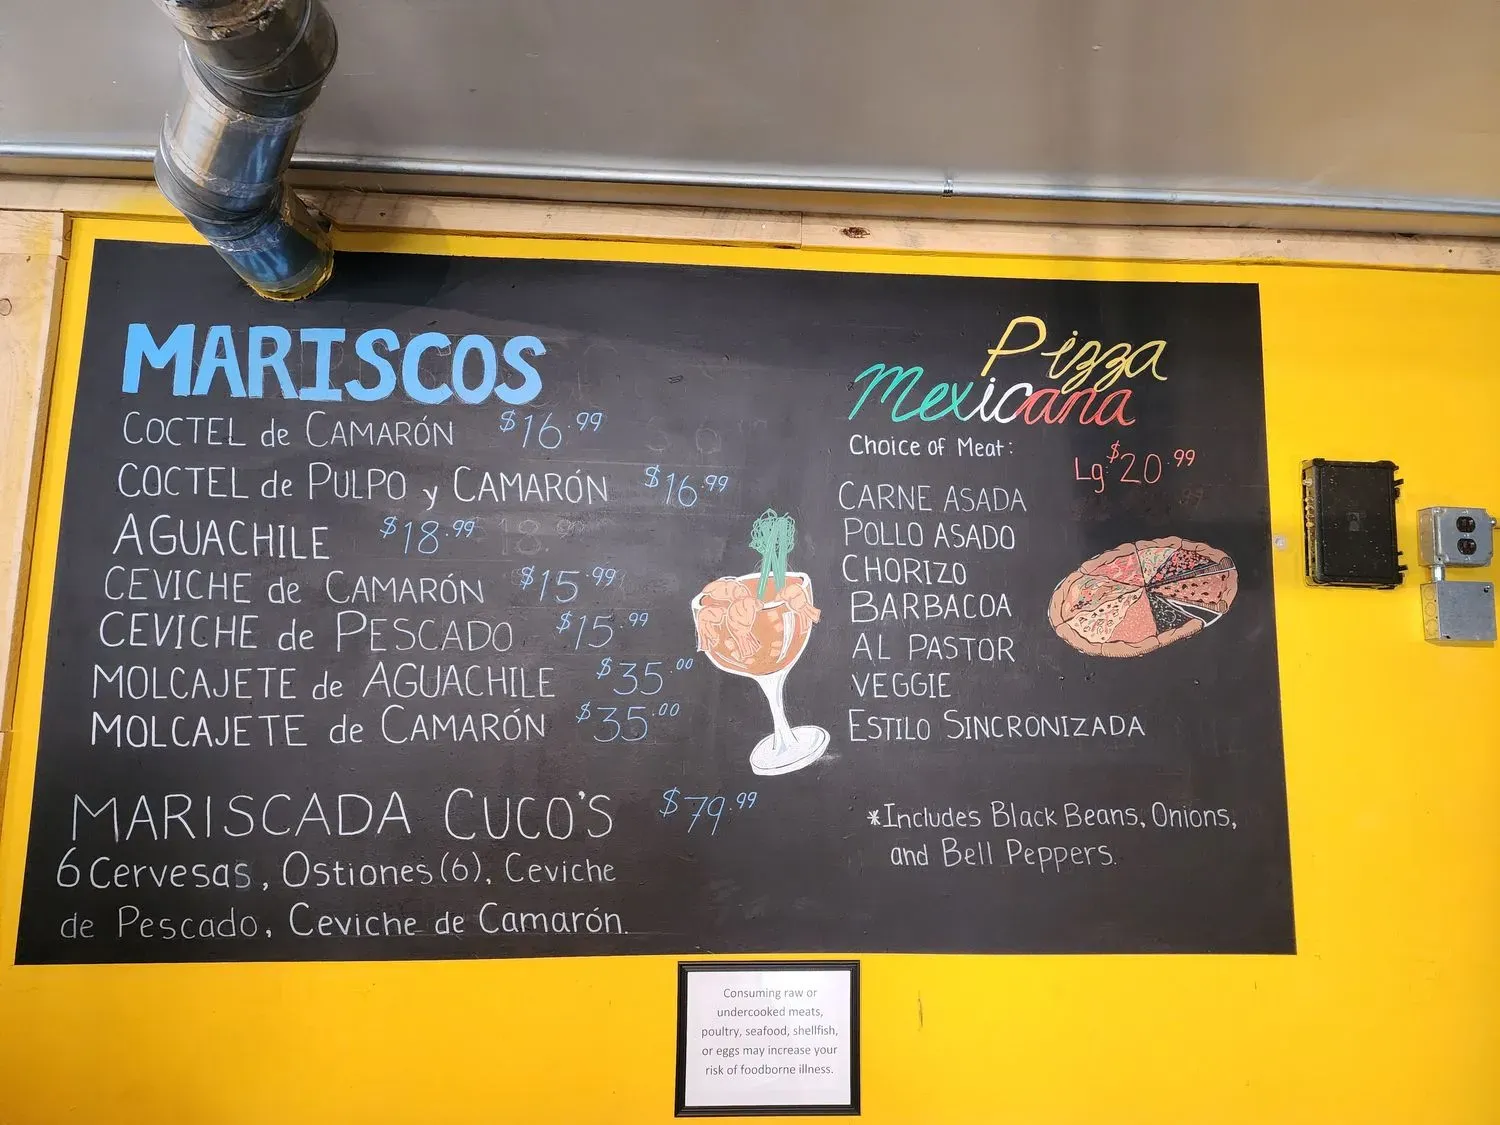 MARISCOS
COCTEL de CAMARÓN $16.99
COCTEL de PULPO y CAMARÓN $16.99
AGUACHILE $18.99
CEVICHE de CAMARÓN $15.99
CEVICHE de PESCADO $15.99
MOLCAJETE de AGUACHILE $35.00
MOLCAJETE de CAMARÓN $35.00
MARISCADA CUCO'S $79.99
6 Cervesas, Ostiones (6), Ceviche
de Pescado, Ceviche de Camarón.
Pizza
Mexicana
Choice of Meat:
Lg $20.99
CARNE ASADA
POLLO ASADO
CHORIZO
BARBACOA
AL PASTOR
VEGGIE
ESTILO SINCRONIZADA
*Includes Black Beans, Onions,
and Bell Peppers.
Consuming raw or
undercooked meats,
poultry, seafood, shellfish,
or eggs may increase your
risk of foodborne illness.